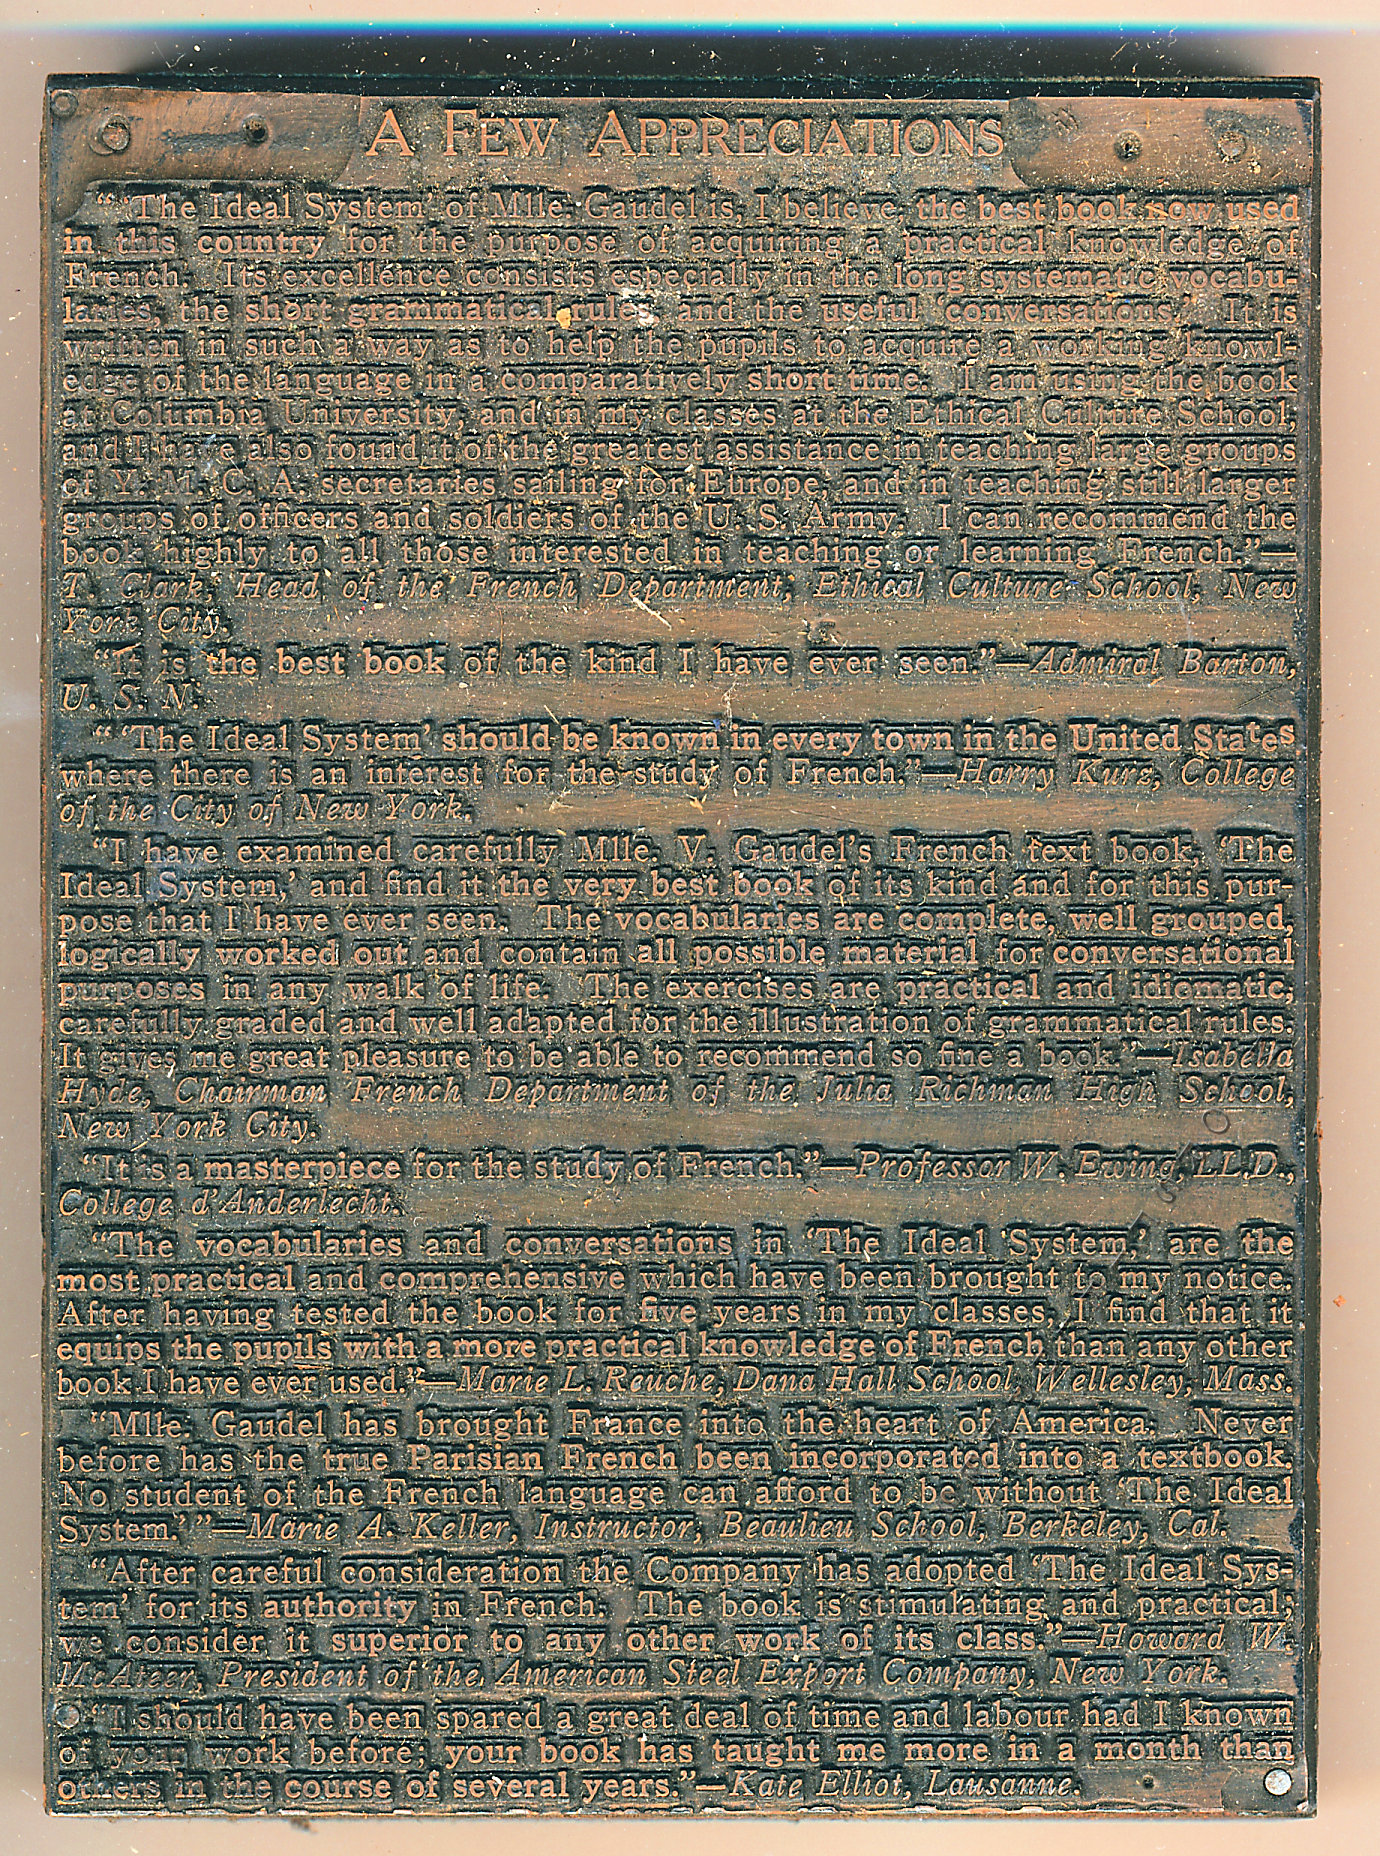 A FEW APPRECIATIONS
“ ‘The Ideal System’ of Mlle. Gaudel is, I believe, the best book now used
in this country for the purpose of acquiring a practical knowledge of
French. Its excellence consists especially in the long systematic vocabu-
laries, the short grammatical rules and the useful ‘conversations.’ It is
written in such a way as to help the pupils to acquire a working knowl-
edge of the language in a comparatively short time. I am using the book
at Columbia University, and in my classes at the Ethical Culture School,
and I have also found it of the greatest assistance in teaching large groups
of Y. M. C. A. secretaries sailing for Europe, and in teaching still larger
groups of officers and soldiers of the U. S. Army. I can recommend the
book highly to all those interested in teaching or learning French.”—
T. Clark, Head of the French Department, Ethical Culture School, New
York City.
“It is the best book of the kind I have ever seen.”—Admiral Barton,
U. S. N.
“ ‘The Ideal System’ should be known in every town in the United States
where there is an interest for the study of French.”—Harry Kurz, College
of the City of New York.
“I have examined carefully Mlle. V. Gaudel’s French text book, ‘The
Ideal System,’ and find it the very best book of its kind and for this pur-
pose that I have ever seen. The vocabularies are complete, well grouped,
logically worked out and contain all possible material for conversational
purposes in any walk of life. The exercises are practical and idiomatic,
carefully graded and well adapted for the illustration of grammatical rules.
It gives me great pleasure to be able to recommend so fine a book.”—Isabella
Hyde, Chairman French Department of the Julia Richman High School,
New York City.
“It is a masterpiece for the study of French.”—Professor W. Ewing, LL.D.,
College d’Anderlecht.
“The vocabularies and conversations in ‘The Ideal System,’ are the
most practical and comprehensive which have been brought to my notice.
After having tested the book for five years in my classes, I find that it
equips the pupils with a more practical knowledge of French than any other
book I have ever used.”—Marie L. Reuche, Dana Hall School, Wellesley, Mass.
“Mlle. Gaudel has brought France into the heart of America. Never
before has the true Parisian French been incorporated into a textbook.
No student of the French language can afford to be without ‘The Ideal
System.’ ”—Marie A. Keller, Instructor, Beaulieu School, Berkeley, Cal.
“After careful consideration the Company has adopted ‘The Ideal Sys-
tem’ for its authority in French. The book is stimulating and practical;
we consider it superior to any other work of its class.”—Howard W.
McAteer, President of the American Steel Export Company, New York.
“I should have been spared a great deal of time and labour had I known
of your work before; your book has taught me more in a month than
others in the course of several years.”—Kate Elliot, Lausanne.